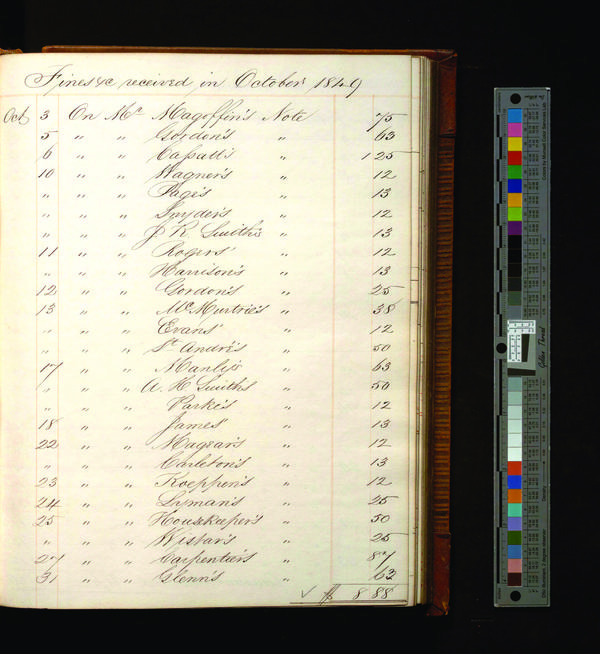 Fines &c received in October 1849
Oct 3 On Mr Magoffin's Note 75
5 " " Gordon's " 63
6 " " Cassatt's " 1 25
10 " " Wagner's " 12
" " " Page's " 13
" " " Snyder's " 12
" " " J R Smith's " 13
11 " " Rogers' " 12
" " " Harrison's " 13
12 " " Gordon's " 25
13 " " McMurtrie's " 38
" " " Evans' " 12
" " " St André's " 50
17 " " Manly's " 63
" " " A. H Smith's " 50
" " " Parke's " 12
18 " " James' " 13
22 " " Magear's " 12
" " " Carleton's " 13
23 " " Koeppen's " 12
24 " " Lyman's " 25
25 " " Housekeeper's " 50
" " " Wistar's " 25
27 " " Carpenter's " 87
31 " " Glenn's " 63
✓ $ 8 88